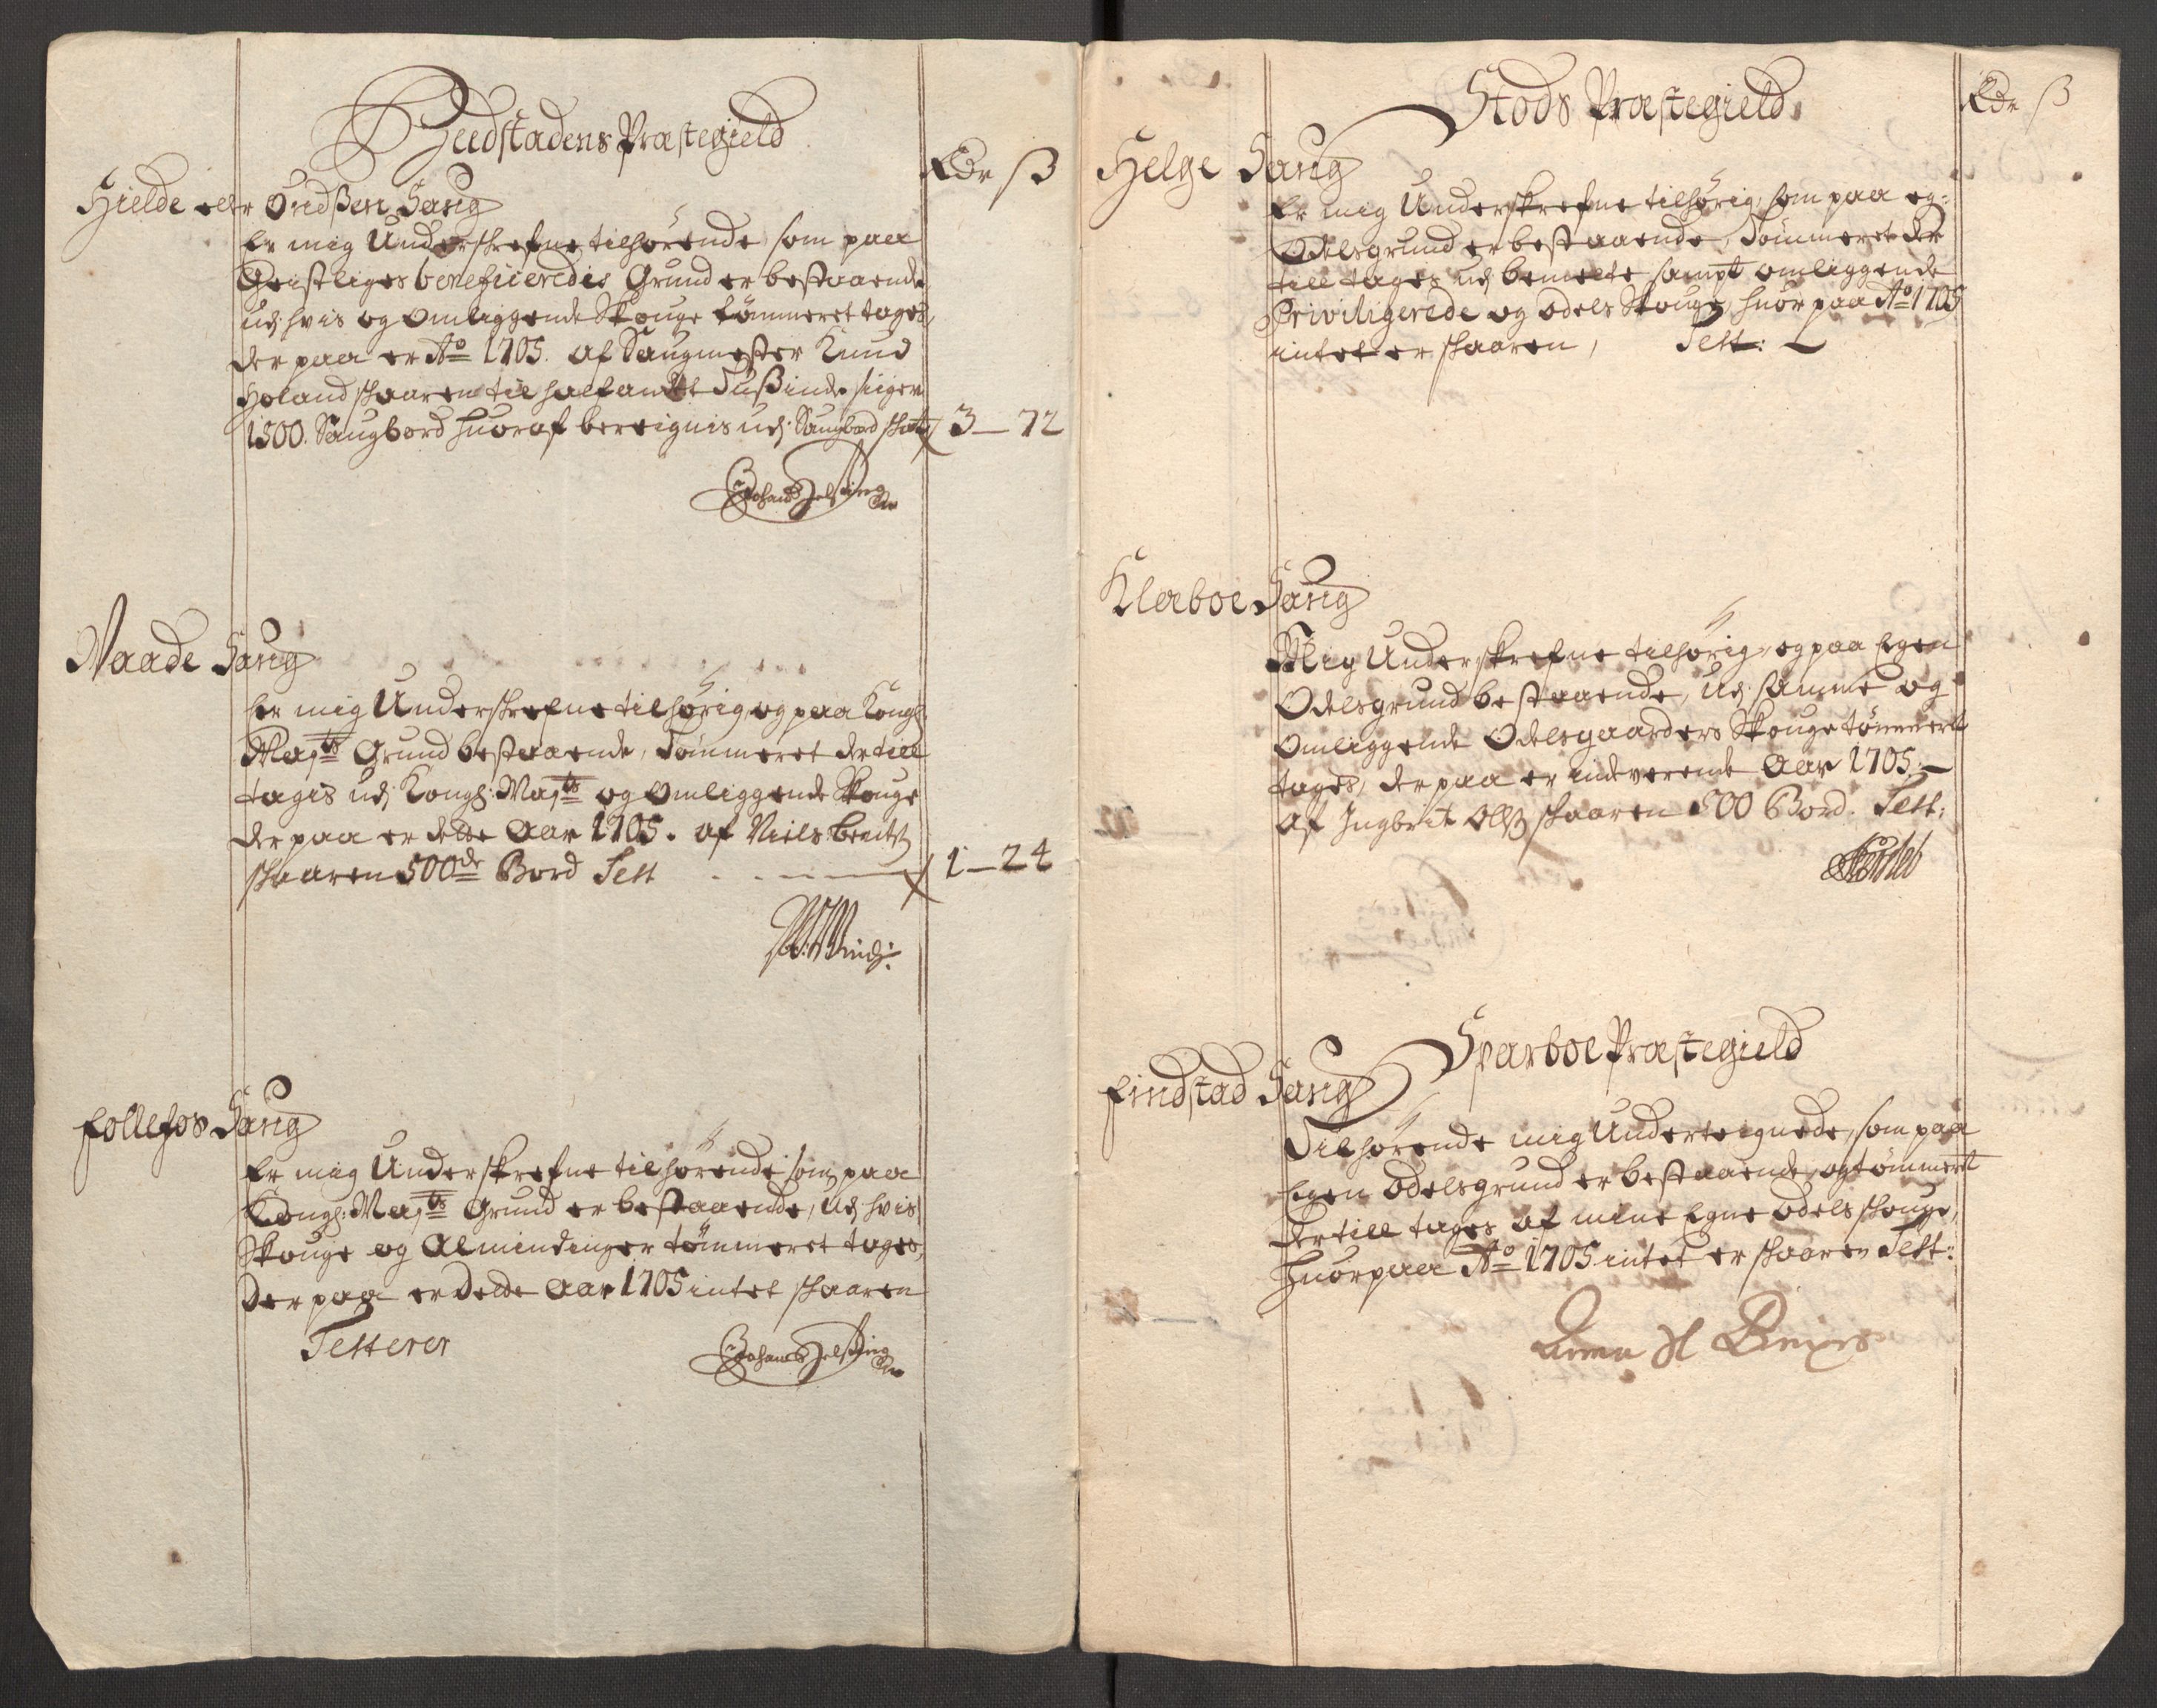 Beedstadens Præstegield
Rdr ß
Hielde eller Saug
Er mig Underskrefne tilhørende som paa
Geistliges beneficeredis Grund er bestaaende
udj hvis og omliggende Skouge tømmeret tages,
der paa er Ao 1705. af Saugmester Knud
Holand skaaren til half andet Tußinde siger
1500. Saugbord huoraf bereignis udj Saugbord skatt 3 – 72
Johan Helsing
Vaade Saug
Er mig Underskrefne tilhørig, og paa Kongl:
Mayts Grund bestaaende, Tømmeret der till
tagis udj Kongl: Mayts og omliggende Skouge
der paa er dette Aar 1705. af Niels
skaaren 500de Bord Sett 1 – 24
Follefos Saug
Er mig Underskrefne tilhørende som paa
Kongl: Mayts Grund er bestaaende, udj hvis
Skouge og Almindinger tømmeret tages,
Der paa er Dette Aar 1705 intet skaaren
Testerer
Johan Helsing
Stods Præstegield
Rdr ß
Helge Saug
Er mig Underskrefne tilhørig, som paa eg:
Odelsgrund er bestaaende, Tømmeret der
till tages udj bemelte sampt omliggende
Priviligerede og odels Skouge, huor paa Ao 1705
intet er skaaren, Test:
Klæboe Saug
Mig Underskrefne tilhørig, og paa Egen
Odelsgrund bestaaende, udj samme og
Omliggende Odelsgaarders Skouge tømmeret
tages, der paa er indeverende Aar 1705.
af Ingbrit skaaren 500 Bord. Test:
Sparboe Præstegield
Findstad Saug
Tilhørende mig Underteignede, som paa
Egen odelsgrund er bestaaende, og tømmeret
dertill tages af mine Egne odels skouge,
huorpaa Ao 1705 intet er skaaren Test: